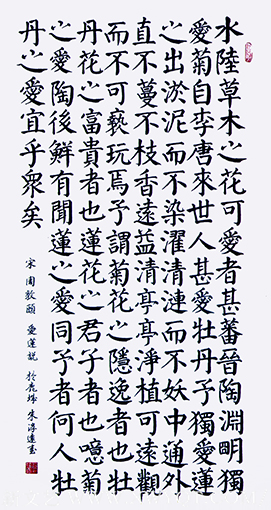 水陸草木之花可愛者甚蕃晉陶淵明獨
愛菊自李唐來世人甚愛牡丹予獨愛蓮
之出淤泥而不染濯清漣而不妖中通外
直不蔓不枝香遠益清亭亭淨植可遠觀
而不可褻玩焉予謂菊花之隱逸者也牡
丹花之富貴者也蓮花之君子者也噫菊
之愛陶後鮮有聞蓮之愛同予者何人牡
丹之愛宜乎衆矣
宋 周敦頤 愛蓮說 於鹿城 朱